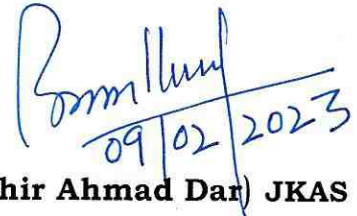 09/02/2023
hir Ahmad Dar) JKAS